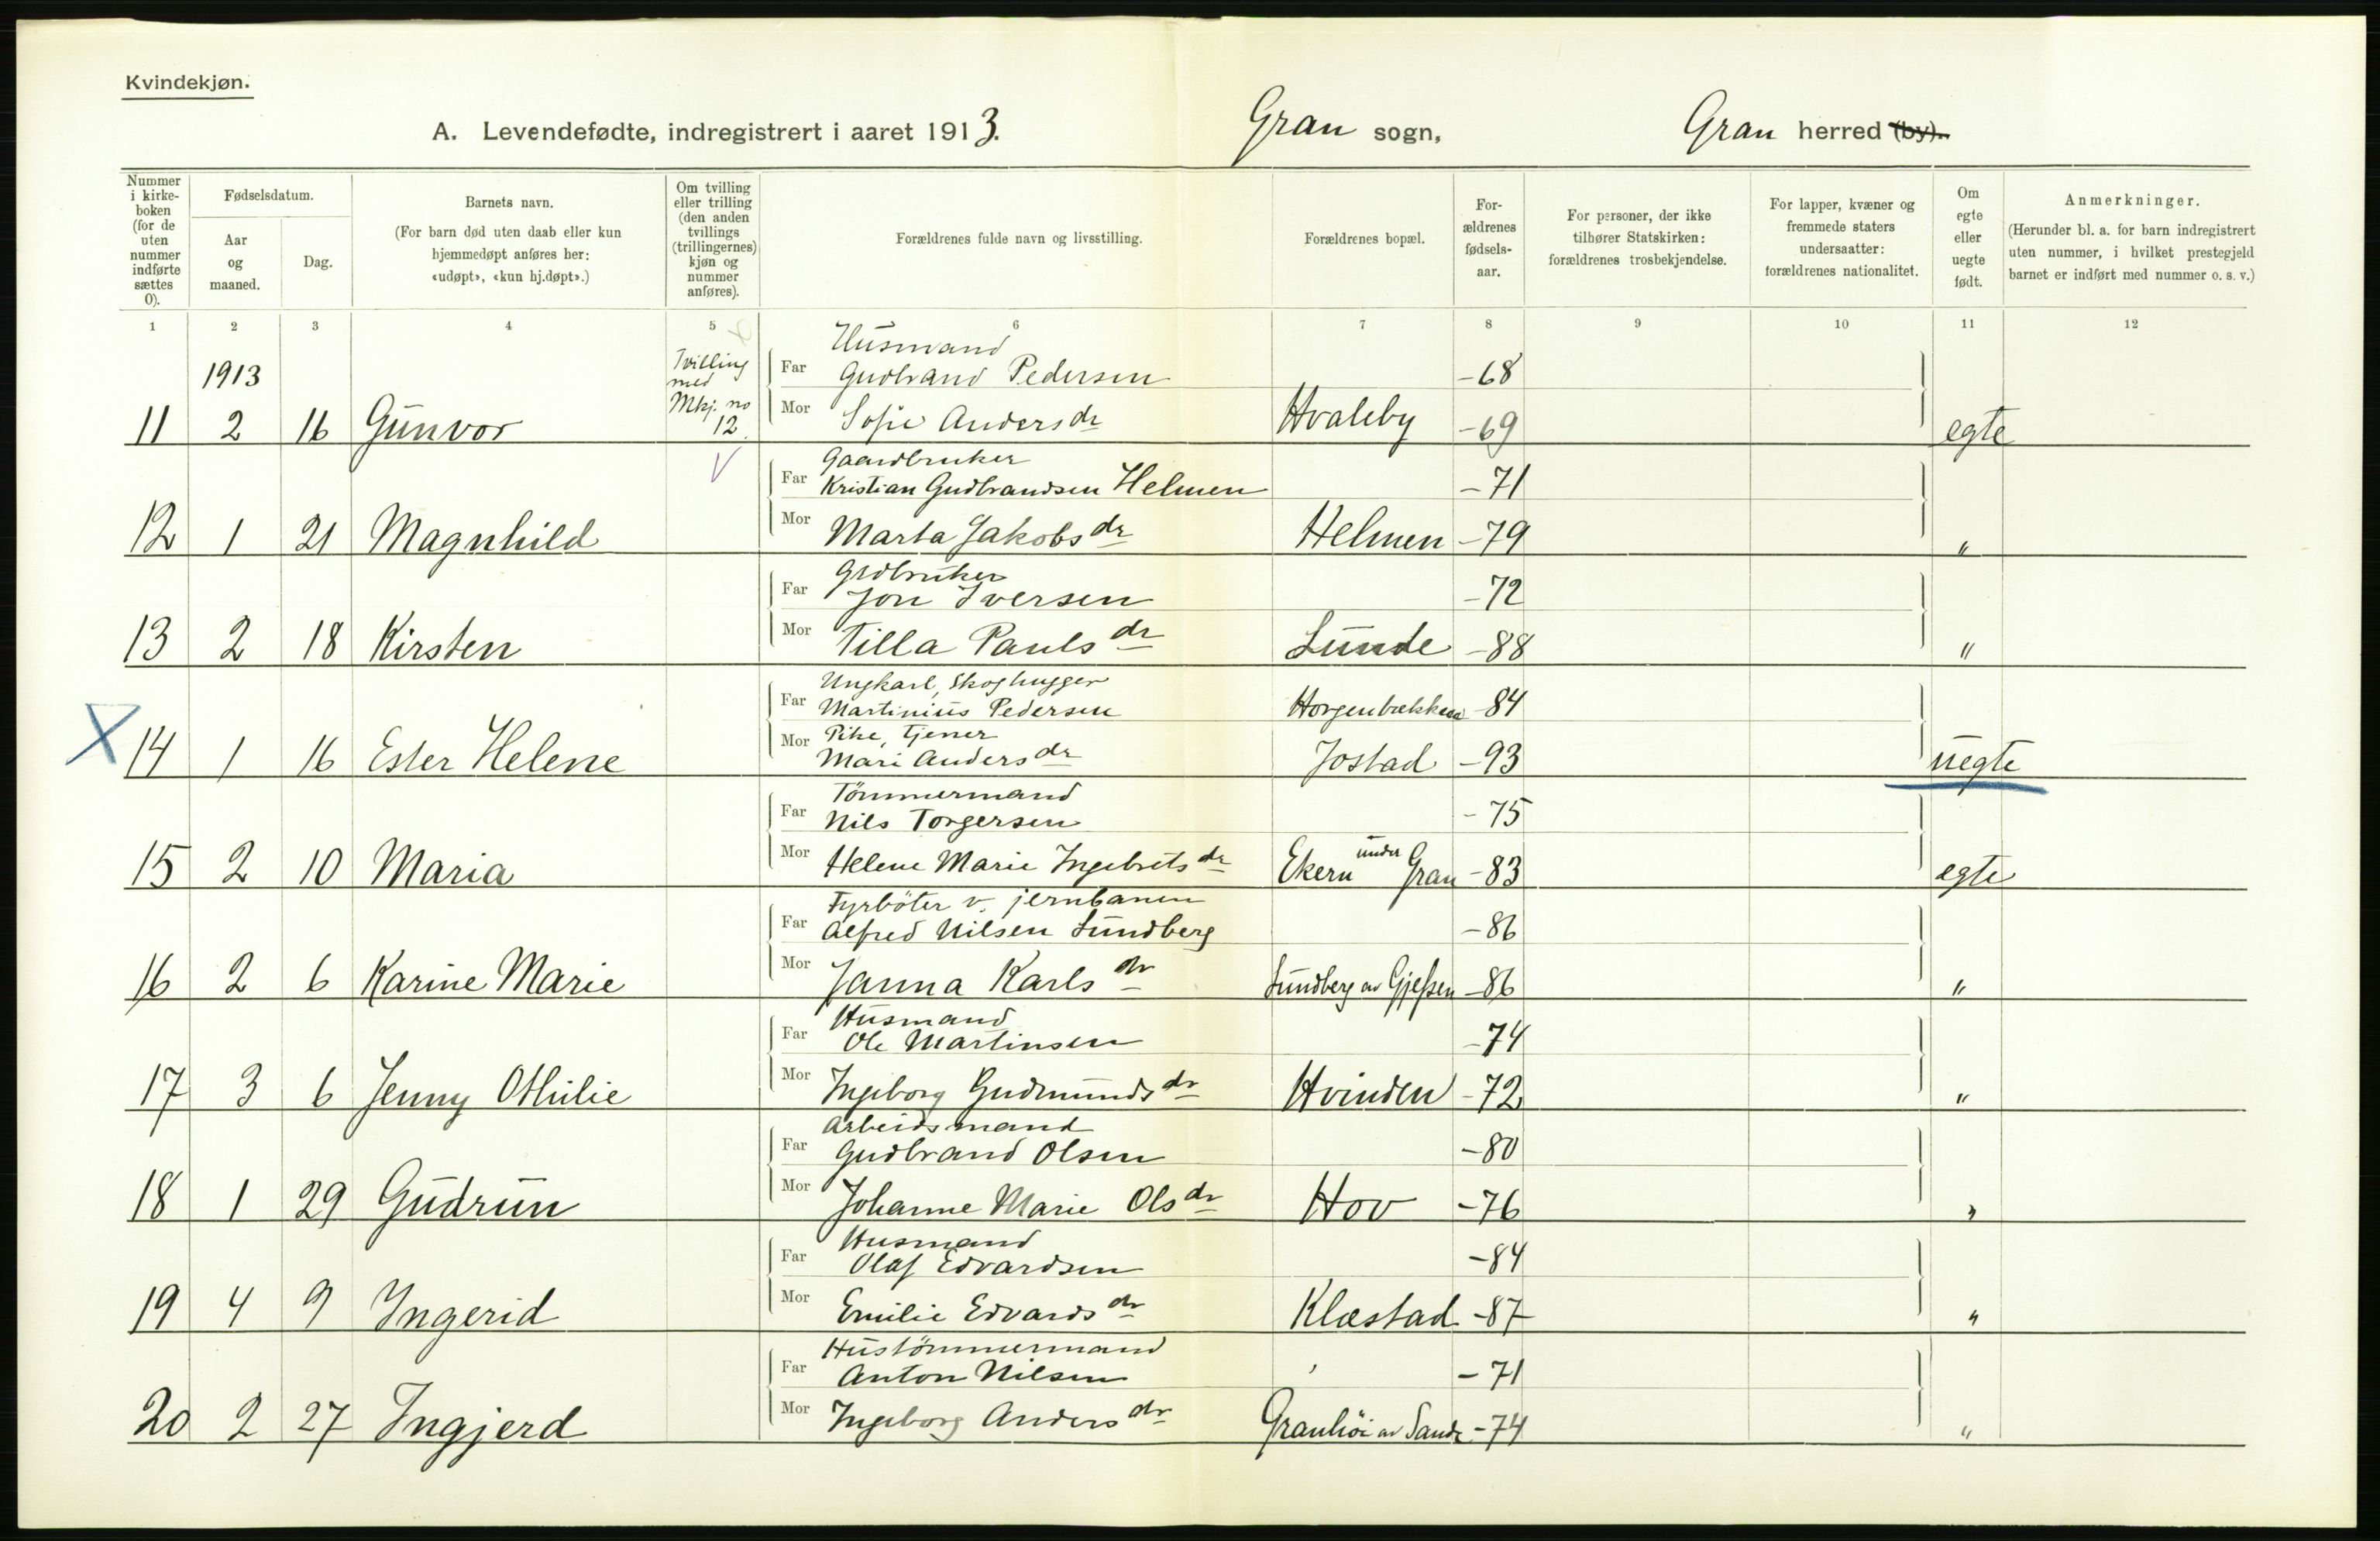 Kvindekjøn.
A. Levendefødte, indregistrert i aaret 1913. Gran sogn, Gran herred (by).
Nummer i kirke-boken (for de uten nummer indførte sættes 0).
Fødselsdatum.
Aar og maaned.
Dag.
Barnets navn.
(For barn død uten daab eller kun hjemmedøpt anføres her: «udøpt», «kun hj.døpt».)
Om tvilling eller trilling (den anden tvillings (trillingernes) kjøn og nummer anføres).
Forældrenes fulde navn og livsstilling.
Forældrenes bopæl.
For-ældrenes fødsels-aar.
For personer, der ikke tilhører Statskirken: forældrenes trosbekjendelse.
For lapper, kvæner og fremmede staters undersaatter: forældrenes nationalitet.
Om egte eller uegte født.
Anmerkninger.
(Herunder bl. a. for barn indregistrert uten nummer, i hvilket prestegjeld barnet er indført med nummer o. s. v.)
1 2 3 4 5 6 7 8 9 10 11 12
1913
Tvilling med Mkj. no 12.
Husmand
Far Gudbrand Pedersen -68
11 2 16 Gunvor Mor Sofie Andersdr Hvaleby -69 egte
Gaardbruker
Far Kristian Gudbrandsen Helmen -71
12 1 21 Magnhild Mor Marta Jakobsdr Helmen -79 "
Grdbruker
Far Jon Iversen -72
13 2 18 Kirsten Mor Tilla Paulsdr Lunde -88 "
Ungkarl, Skoghugger
Far Martinius Pedersen Horgenbækken -84
Pike, Tjener
X 14 1 16 Ester Helene Mor Mari Andersdr Jostad -93 uegte
Tömmermand
Far Nils Torgersen -75
15 2 10 Maria Mor Helene Marie Ingebretsdr Ekern under Gran -83 egte
Fyrböter v. jernbanen
Far Alfred Nilsen Lundberg -86
16 2 6 Karine Marie Mor Janna Karlsdr Lundberg av Gjefsen -86 "
Husmand
Far Ole Martinsen -74
17 3 6 Jenny Othilie Mor Ingeborg Gudmundsdr Hvinden -72 "
Arbeidsmand
Far Gudbrand Olsen -80
18 1 29 Gudrun Mor Johanne Marie Olsdr Hov -76 "
Husmand
Far Olaf Edvardsen -84
19 4 9 Ingerid Mor Emilie Edvardsdr Klæstad -87 "
Hustömmermand
Far Anton Nilsen -71
20 2 27 Ingjerd Mor Ingeborg Andersdr Granhöi av Sande -74 "